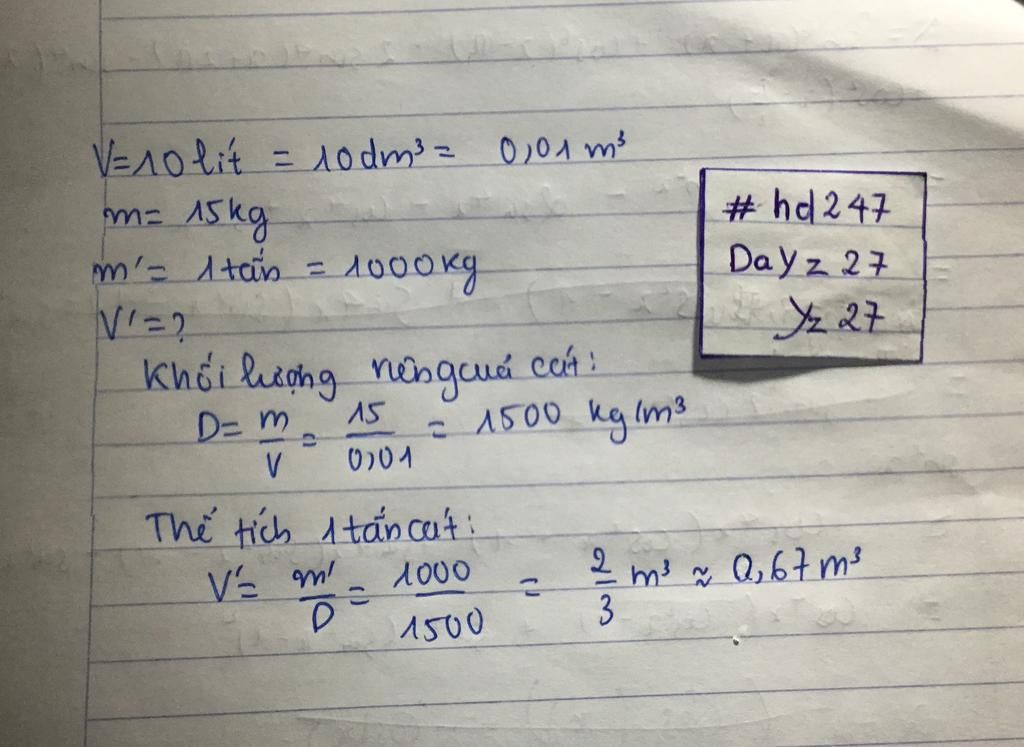 V=10 lít = 10dm³ = 0,01 m³
m= 15kg
m'= 1 tấn = 1000kg
V'=?
Khối lượng riêng của cát:
D= m/V = 15/0,01 = 1500 kg/m³
Thể tích 1 tấn cát:
V'= m'/D = 1000/1500 = 2/3 m³ ≈ 0,67 m³
# hd247
DaYz 27
Yz 27